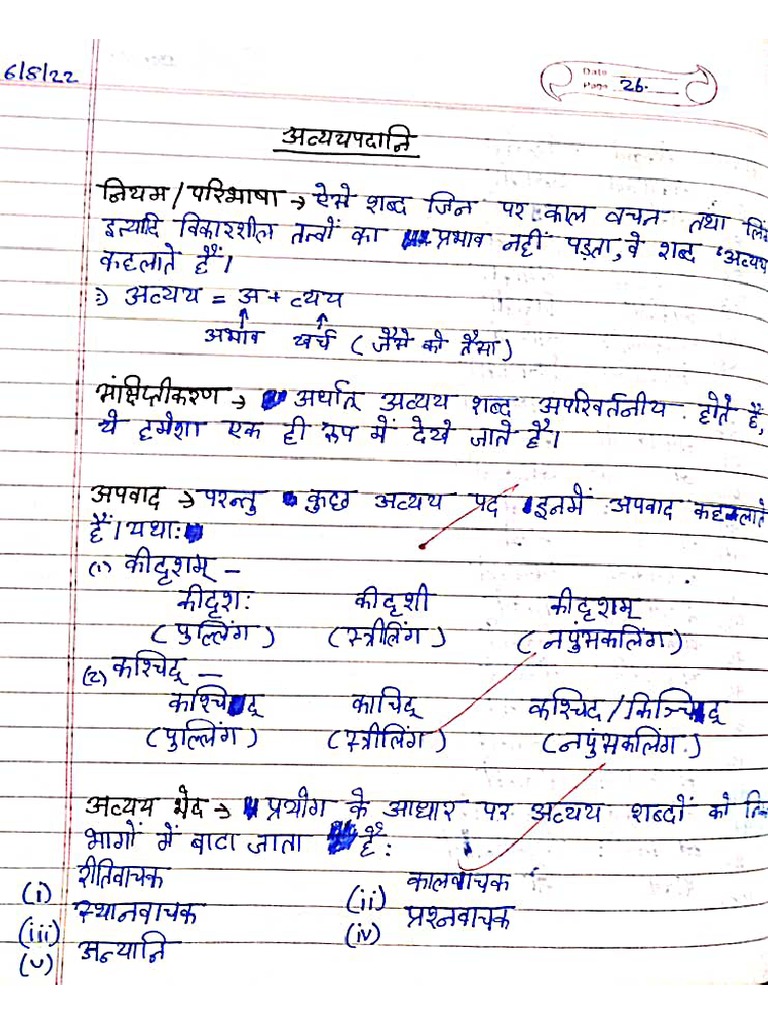 6/8/22
Date
Page 26.
अव्ययपदानि
नियम/परिभाषा → ऐसे शब्द जिन पर काल वचन तथा
इत्यादि विकारशील तत्वों का प्रभाव नहीं पड़ता, वे शब्द 'अव्यय
कहलाते हैं।
अव्यय = अ + व्यय
अभाव खर्च ( जैसे को तैसा )
संक्षिप्तीकरण → अर्थात् अव्यय शब्द अपरिवर्तनीय होते हैं,
ये हमेशा एक ही रूप में देखे जाते हैं।
अपवाद → परन्तु कुछ अव्यय पद इनमें अपवाद कहलाते
हैं। यथा:
(1) कीदृशम् –
कीदृश: कीदृशी कीदृशम्
(पुल्लिंग) (स्त्रीलिंग) (नपुंसकलिंग)
(2) कश्चिद् –
कश्चिद् काचिद् कश्चिद/किञ्चिद्
(पुल्लिंग) (स्त्रीलिंग) (नपुंसकलिंग.)
अव्यय भेद → प्रयोग के आधार पर अव्यय शब्दों को
भागों में बाटा जाता है:
(i) रीतिवाचक (ii) कालवाचक
(iii) स्थानवाचक (iv) प्रश्नवाचक
(v) अन्यानि